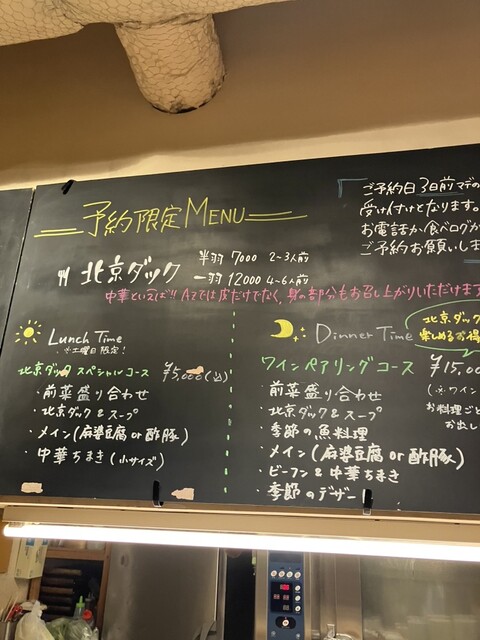 予約限定MENU
ご予約日3日前マデの
受け付けとなります。
お電話か、食べログか
ご予約お願いしま
北京ダック 半羽 7000 2~3人前
一羽 12000 4~6人前
中華といえば!! AZでは皮だけでなく、身の部分もお召し上がりいただけます
Lunch Time
※土曜日限定!
北京ダック スペシャルコース ¥5,000(込)
・前菜盛り合わせ
・北京ダック&スープ
・メイン(麻婆豆腐or酢豚)
・中華ちまき(小サイズ)
Dinner Time
北京ダック
楽しめるお得
ワインペアリングコース ¥15,00
(※ワイン
お料理ごと
お出し
・前菜盛り合わせ
・北京ダック&スープ
・季節の魚料理
・メイン(麻婆豆腐or酢豚)
・ビーフン&中華ちまき
・季節のデザート